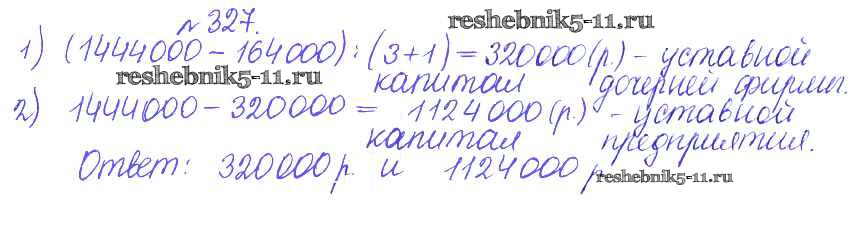 № 327.
reshebnik5-11.ru
1) (1444000 - 164000) : (3+1) = 320000 (р.) - уставной
капитал дочерней фирмы.
reshebnik5-11.ru
2) 1444000 - 320000 = 1124000 (р.) - уставной
капитал предприятия.
Ответ: 320000 р. и 1124000 р.
reshebnik5-11.ru